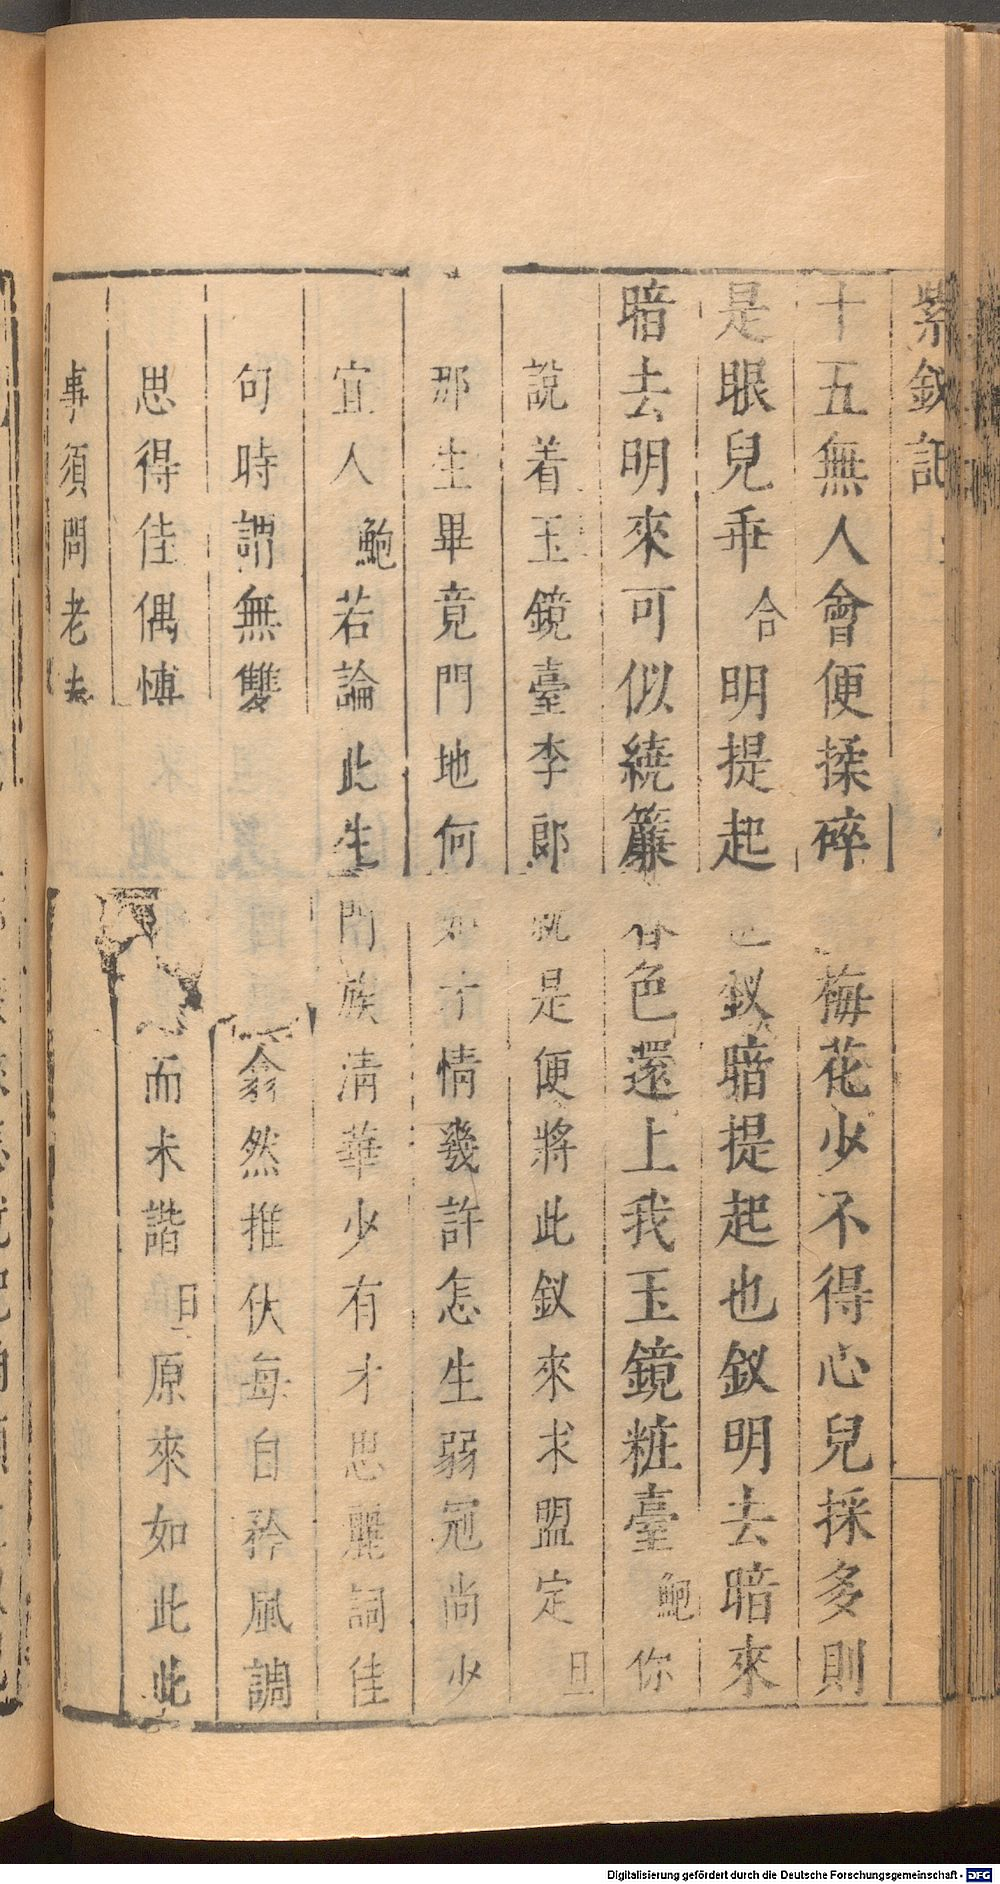 紫釵記
十五無人會便揉碎梅花少不得心兒採多則
是眼兒乖合明提起釵暗提起也釵明去暗來
暗去明來可似繞簾春色還上我玉鏡粧臺鮑你
說着玉鏡臺李郎就是便將此釵來求盟定旦
那生畢竟門地何如才情幾許怎生弱冠尚少
宜人鮑若論此生門族清華少有才思麗詞佳
句時謂無雙翕然推伏每自矜風調
思得佳偶博而未諧旦原來如此此
事須問老夫
Digitalisierung gefördert durch die Deutsche Forschungsgemeinschaft - DFG